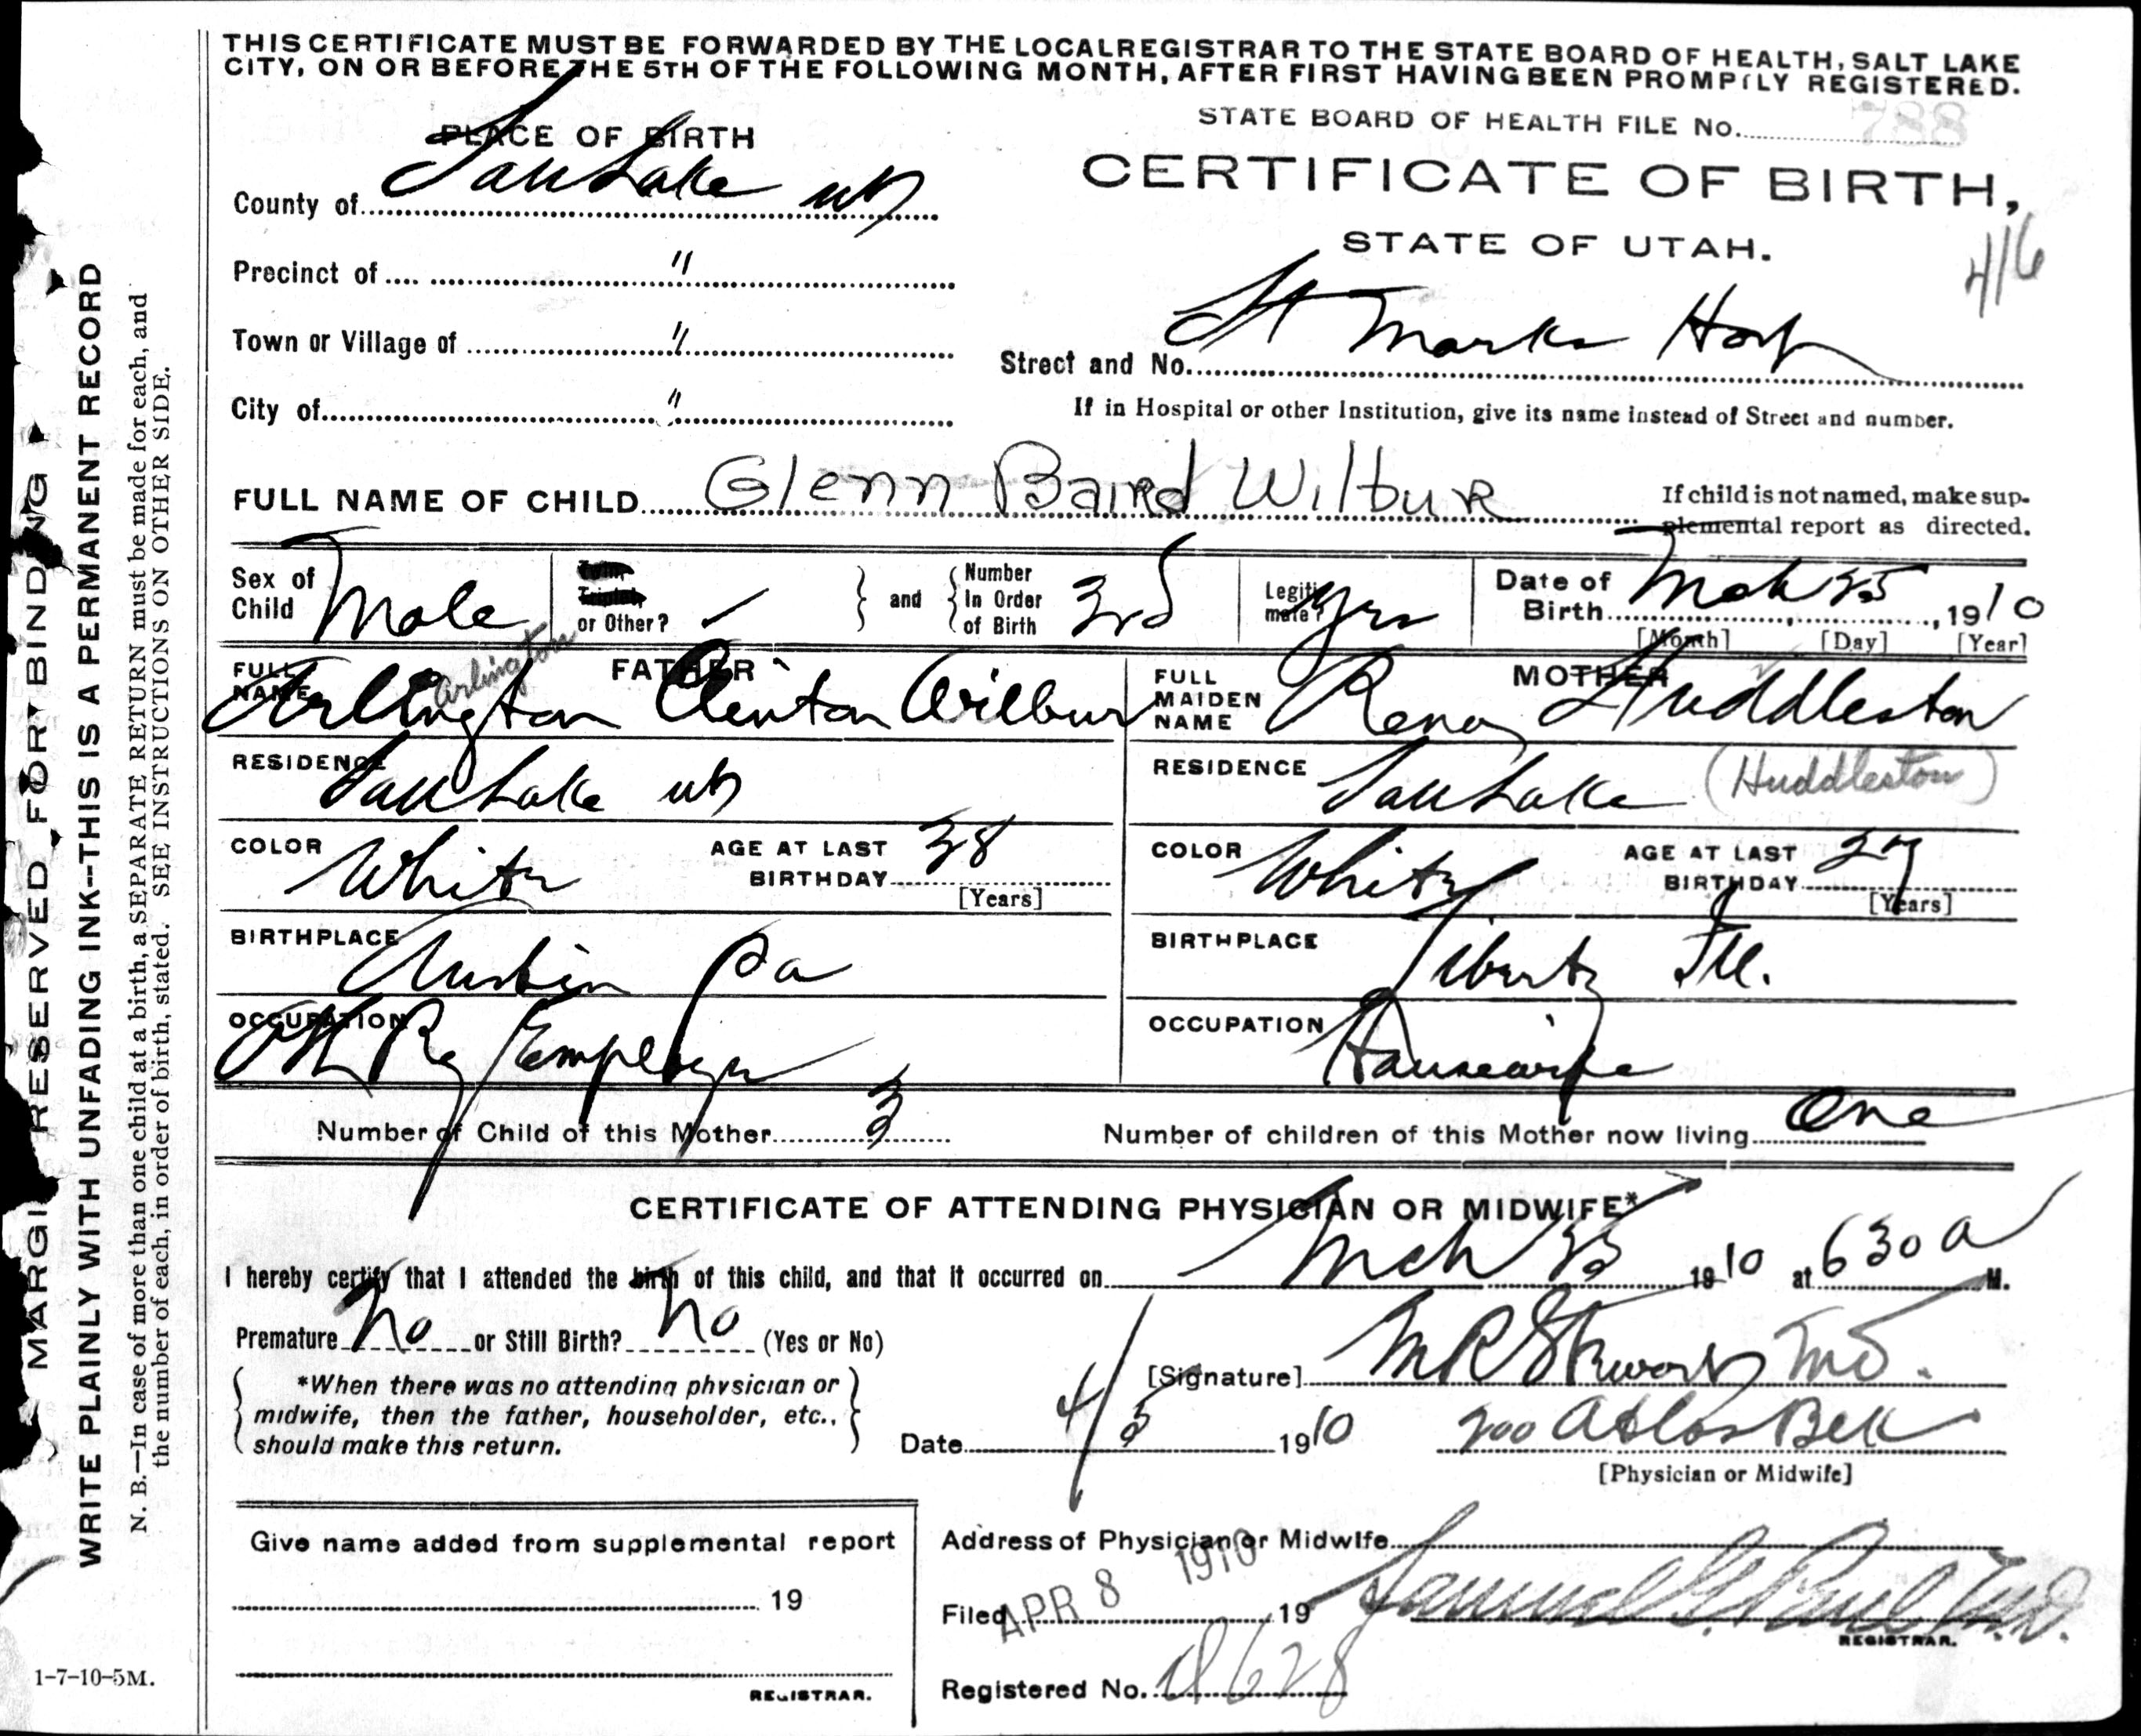 THIS CERTIFICATE MUST BE FORWARDED BY THE LOCAL REGISTRAR TO THE STATE BOARD OF HEALTH, SALT LAKE
CITY, ON OR BEFORE THE 5TH OF THE FOLLOWING MONTH, AFTER FIRST HAVING BEEN PROMPTLY REGISTERED.
STATE BOARD OF HEALTH FILE No. 788
PLACE OF BIRTH
CERTIFICATE OF BIRTH,
STATE OF UTAH.
416
County of Salt Lake
Precinct of "
Town or Village of "
City of "
Street and No. St Marks Hosp
If in Hospital or other Institution, give its name instead of Street and number.
FULL NAME OF CHILD Glenn Baird Wilbur
If child is not named, make sup-
plemental report as directed.
Sex of Child Male
Twin, Triplet, or Other? /
and Number In Order of Birth 3rd
Legitimate? Yes
Date of Birth Mch 25, 1910
[Month] [Day] [Year]
FATHER
FULL NAME Arlington Clinton Wilbur
Arlington
MOTHER
FULL MAIDEN NAME Rena Huddleston
RESIDENCE Salt Lake
RESIDENCE Salt Lake (Huddleston)
COLOR White
AGE AT LAST BIRTHDAY 38
[Years]
COLOR White
AGE AT LAST BIRTHDAY 27
[Years]
BIRTHPLACE Austin Pa
BIRTHPLACE Liberty Ill.
OCCUPATION Ry Employe
OCCUPATION Housewife
Number of Child of this Mother 3
Number of children of this Mother now living One
CERTIFICATE OF ATTENDING PHYSICIAN OR MIDWIFE*
I hereby certify that I attended the birth of this child, and that it occurred on Mch 25 1910 at 630 a M.
Premature No or Still Birth? No (Yes or No)
*When there was no attending physician or
midwife, then the father, householder, etc.,
should make this return.
[Signature] M R Stewart MD.
Date 4/5 1910
700 Atlas Blk
[Physician or Midwife]
Give name added from supplemental report
19
REGISTRAR.
Address of Physician or Midwife
Filed APR 8 1910 19
Samuel G. Paul M.D.
REGISTRAR.
Registered No. 628
1-7-10-5M.
MARGIN RESERVED FOR BINDING
WRITE PLAINLY WITH UNFADING INK--THIS IS A PERMANENT RECORD
N. B.—In case of more than one child at a birth, a SEPARATE RETURN must be made for each, and
the number of each, in order of birth, stated. SEE INSTRUCTIONS ON OTHER SIDE.